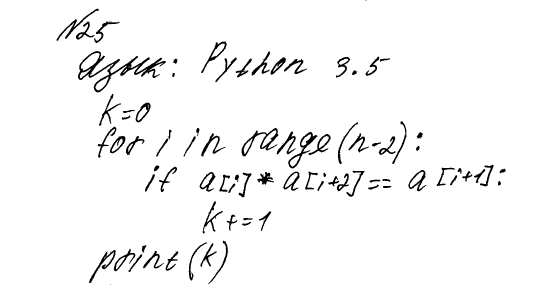 №25
Язык: Python 3.5
k=0
for i in range(n-2):
if a[i]*a[i+2]==a[i+1]:
k+=1
print(k)